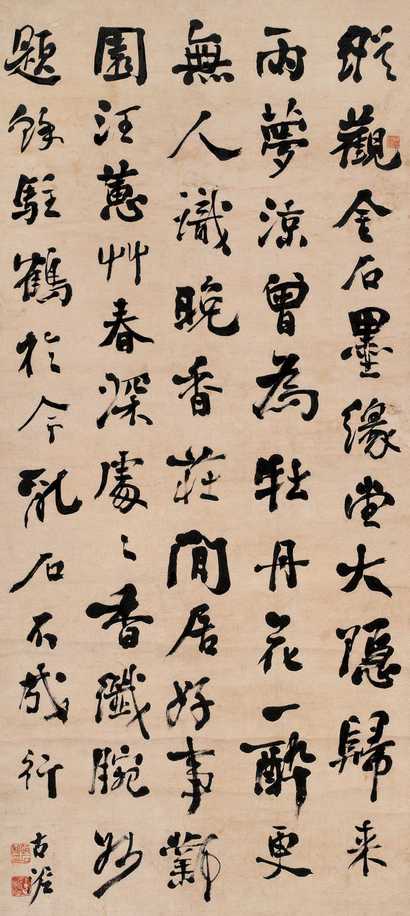 縱觀金石墨緣堂大隱歸来
雨夢涼曾為牡丹花一醉更
無人識晚香莊閒居好事
園汪蕙艸春深處〻香纖腕妙
題餘駐鶴於今亂石不成行
古